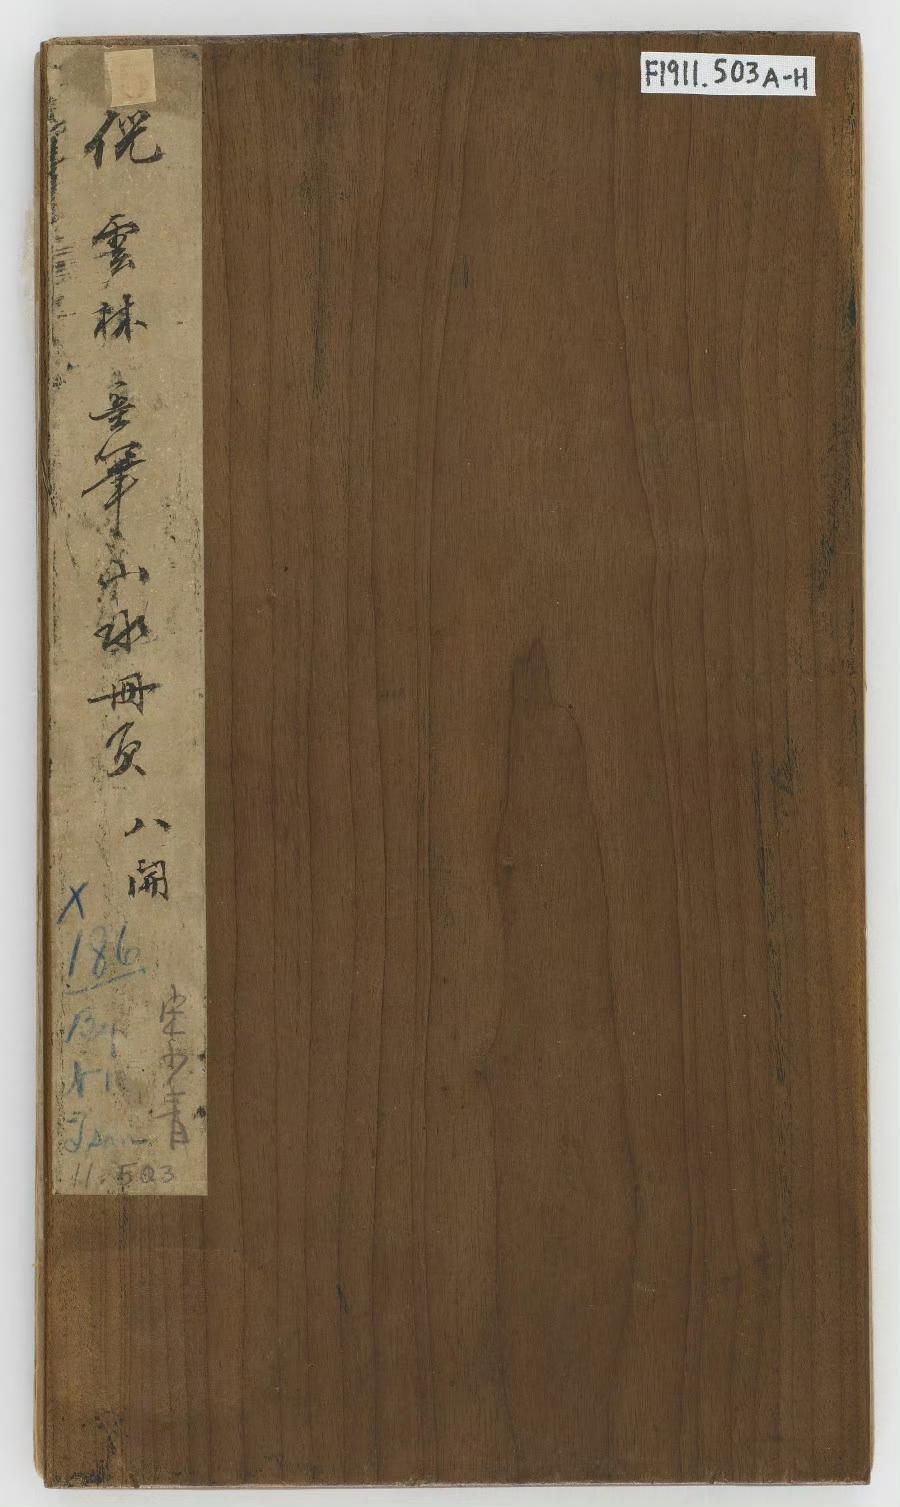 F1911.503A-H
倪雲林
筆山水冊頁
八開
X
186
11.503